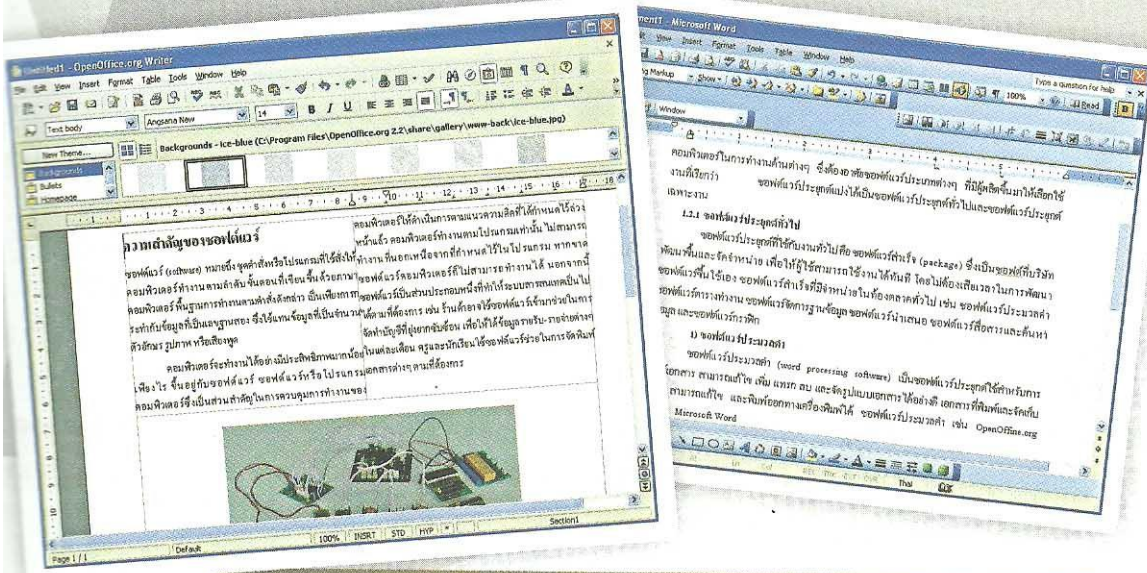 Untitled1 - OpenOffice.org Writer
File Edit View Insert Format Table Tools Window Help
Text body Angsana New 14 B I U
New Theme... Backgrounds - Ice-blue (C:\Program Files\OpenOffice.org 2.2\share\gallery\www-back\ice-blue.jpg)
Backgrounds
Bullets
Homepage
ความสำคัญของซอฟต์แวร์
ซอฟต์แวร์ (software) หมายถึง ชุดคำสั่งหรือโปรแกรมที่ใช้สั่งให้
คอมพิวเตอร์ทำงานตามลำดับขั้นตอนที่เขียนขึ้นด้วยภาษา
คอมพิวเตอร์ พื้นฐานการทำงานตามคำสั่งดังกล่าว เป็นเพียงการ
กระทำกับข้อมูลที่เป็นเลขฐานสอง ซึ่งใช้แทนข้อมูลที่เป็นจำนวน
ตัวอักษร รูปภาพ หรือเสียงพูด
คอมพิวเตอร์จะทำงานได้อย่างมีประสิทธิภาพมากน้อย
เพียงไร ขึ้นอยู่กับซอฟต์แวร์ ซอฟต์แวร์หรือโปรแกรม
คอมพิวเตอร์ซึ่งเป็นส่วนสำคัญในการควบคุมการทำงานของ
คอมพิวเตอร์ให้ดำเนินการตามแนวความคิดที่ได้กำหนดไว้ล่วง
หน้าแล้ว คอมพิวเตอร์ทำงานตามโปรแกรมเท่านั้น ไม่สามารถ
ทำงานที่นอกเหนือจากที่กำหนดไว้ในโปรแกรม หากขาด
ซอฟต์แวร์คอมพิวเตอร์ก็ไม่สามารถทำงานได้ นอกจากนี้
ซอฟต์แวร์เป็นส่วนประกอบหนึ่งที่ทำให้ระบบสารสนเทศเป็นไป
ได้ตามที่ต้องการ เช่น ร้านค้าอาจใช้ซอฟต์แวร์เข้ามาช่วยในการ
จัดทำบัญชีที่ยุ่งยากซับซ้อน เพื่อให้ได้ข้อมูลรายรับ-รายจ่ายต่างๆ
ในแต่ละเดือน ครูและนักเรียนใช้ซอฟต์แวร์ช่วยในการจัดพิมพ์
เอกสารต่างๆ ตามที่ต้องการ
Page 1 / 1 Default 100% INSRT STD HYP * Section1
ment1 - Microsoft Word
View Insert Format Tools Table Window Help
Type a question for help
Markup Show 100% Read
Window
คอมพิวเตอร์ในการทำงานด้านต่างๆ ซึ่งต้องอาศัยซอฟต์แวร์ประเภทต่างๆ ที่มีผู้ผลิตขึ้นมาให้เลือกใช้
งานที่เรียกว่า ซอฟต์แวร์ประยุกต์แบ่งได้เป็นซอฟต์แวร์ประยุกต์ทั่วไปและซอฟต์แวร์ประยุกต์
เฉพาะงาน
1.2.1 ซอฟต์แวร์ประยุกต์ทั่วไป
ซอฟต์แวร์ประยุกต์ที่ใช้กับงานทั่วไป คือ ซอฟต์แวร์สำเร็จ (package) ซึ่งเป็นซอฟต์ที่บริษัท
พัฒนาขึ้นและจัดจำหน่าย เพื่อให้ผู้ใช้สามารถใช้งานได้ทันที โดยไม่ต้องเสียเวลาในการพัฒนา
ซอฟต์แวร์ขึ้นใช้เอง ซอฟต์แวร์สำเร็จที่มีจำหน่ายในท้องตลาดทั่วไป เช่น ซอฟต์แวร์ประมวลคำ
ซอฟต์แวร์ตารางทำงาน ซอฟต์แวร์จัดการฐานข้อมูล ซอฟต์แวร์นำเสนอ ซอฟต์แวร์สื่อสารและค้นหา
ข้อมูล และซอฟต์แวร์กราฟิก
1) ซอฟต์แวร์ประมวลคำ
ซอฟต์แวร์ประมวลคำ (word processing software) เป็นซอฟต์แวร์ประยุกต์ใช้สำหรับการ
พิมพ์เอกสาร สามารถแก้ไข เพิ่ม แทรก ลบ และจัดรูปแบบเอกสารได้อย่างดี เอกสารที่พิมพ์และจัดเก็บ
สามารถแก้ไข และพิมพ์ออกทางเครื่องพิมพ์ได้ ซอฟต์แวร์ประมวลคำ เช่น OpenOffine.org
Microsoft Word
At Ln Col REC TRK EXT OVR Thai